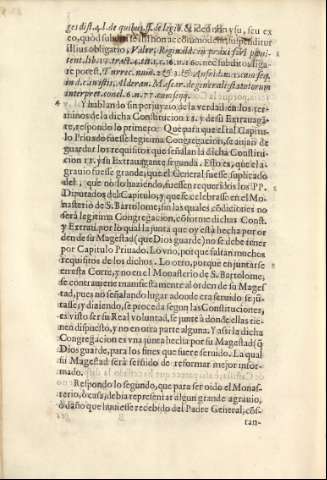 ges dist. 4. l. de quibus, ff. de legib. Si ideo vn y su, seu ex
eo, quod subditis sit illis non accommodetur, suspenditur
illius obligatio, Valer. Reginald. in praxi fori pœni-
tent. lib. 13. tract. 4. nu.
re potest, Turrec. num. 2. & 3. & Ansfeldan.
in d. c. in istis, Aldaran. Mascar. de generali statutorum
interpret. concl. 6. n. 77. cum seqq.
Y hablando sin perjuyzio de la verdad en los ter-
minos de la dicha Constitucion 11. y de su Extrauagā-
te, respondo lo primero: Que para que el tal Capitu-
lo Priuado fuesse legitima Congregacion, se auian de
guardar los requisitos que señalan la dicha Constitu-
cion 11. y su Extrauagante segunda. Esto es, que el a-
grauio fuesse grande, que el General fuesse suplicado
del, que no lo haziendo, fuessen requeridos los PP.
Diputados del Capitulo, y que se celebrasse en el Mo-
nasterio de S. Bartolome, sin las quales cōdiciones no
será legitima Congregacion, cōforme dichas Const.
y Extrau. por lo qual la junta que oy està hecha por or
den de su Magestad (que Dios guarde) no se debe tener
por Capitulo Priuado. Lo vno, porque faltan muchos
requisitos de los dichos. Lo otro, porque en juntarse
en esta Corte, y no en el Monasterio de S. Bartolome,
se contrauiene manifiestamente al orden de su Mages
tad, pues no señalando lugar adonde era seruido se jū-
tasse, y diziendo, se proceda segun las Constituciones,
es visto ser su Real voluntad, se junte à donde ellas tie-
nen dispuesto, y no en otra parte alguna. Y assi la dicha
Congregacion es vna junta hecha por su Magestad (q̃
Dios guarde, para los fines que fuere seruido. La qual
su Magestad serà seruido de reformar mejor infor-
mado.
Respondo lo segundo, que para ser oìdo el Monas-
terio, ò casa, debia representar algun grande agrauio,
ò daño que huuiesse recebido del Padre General, cōs-
tan-